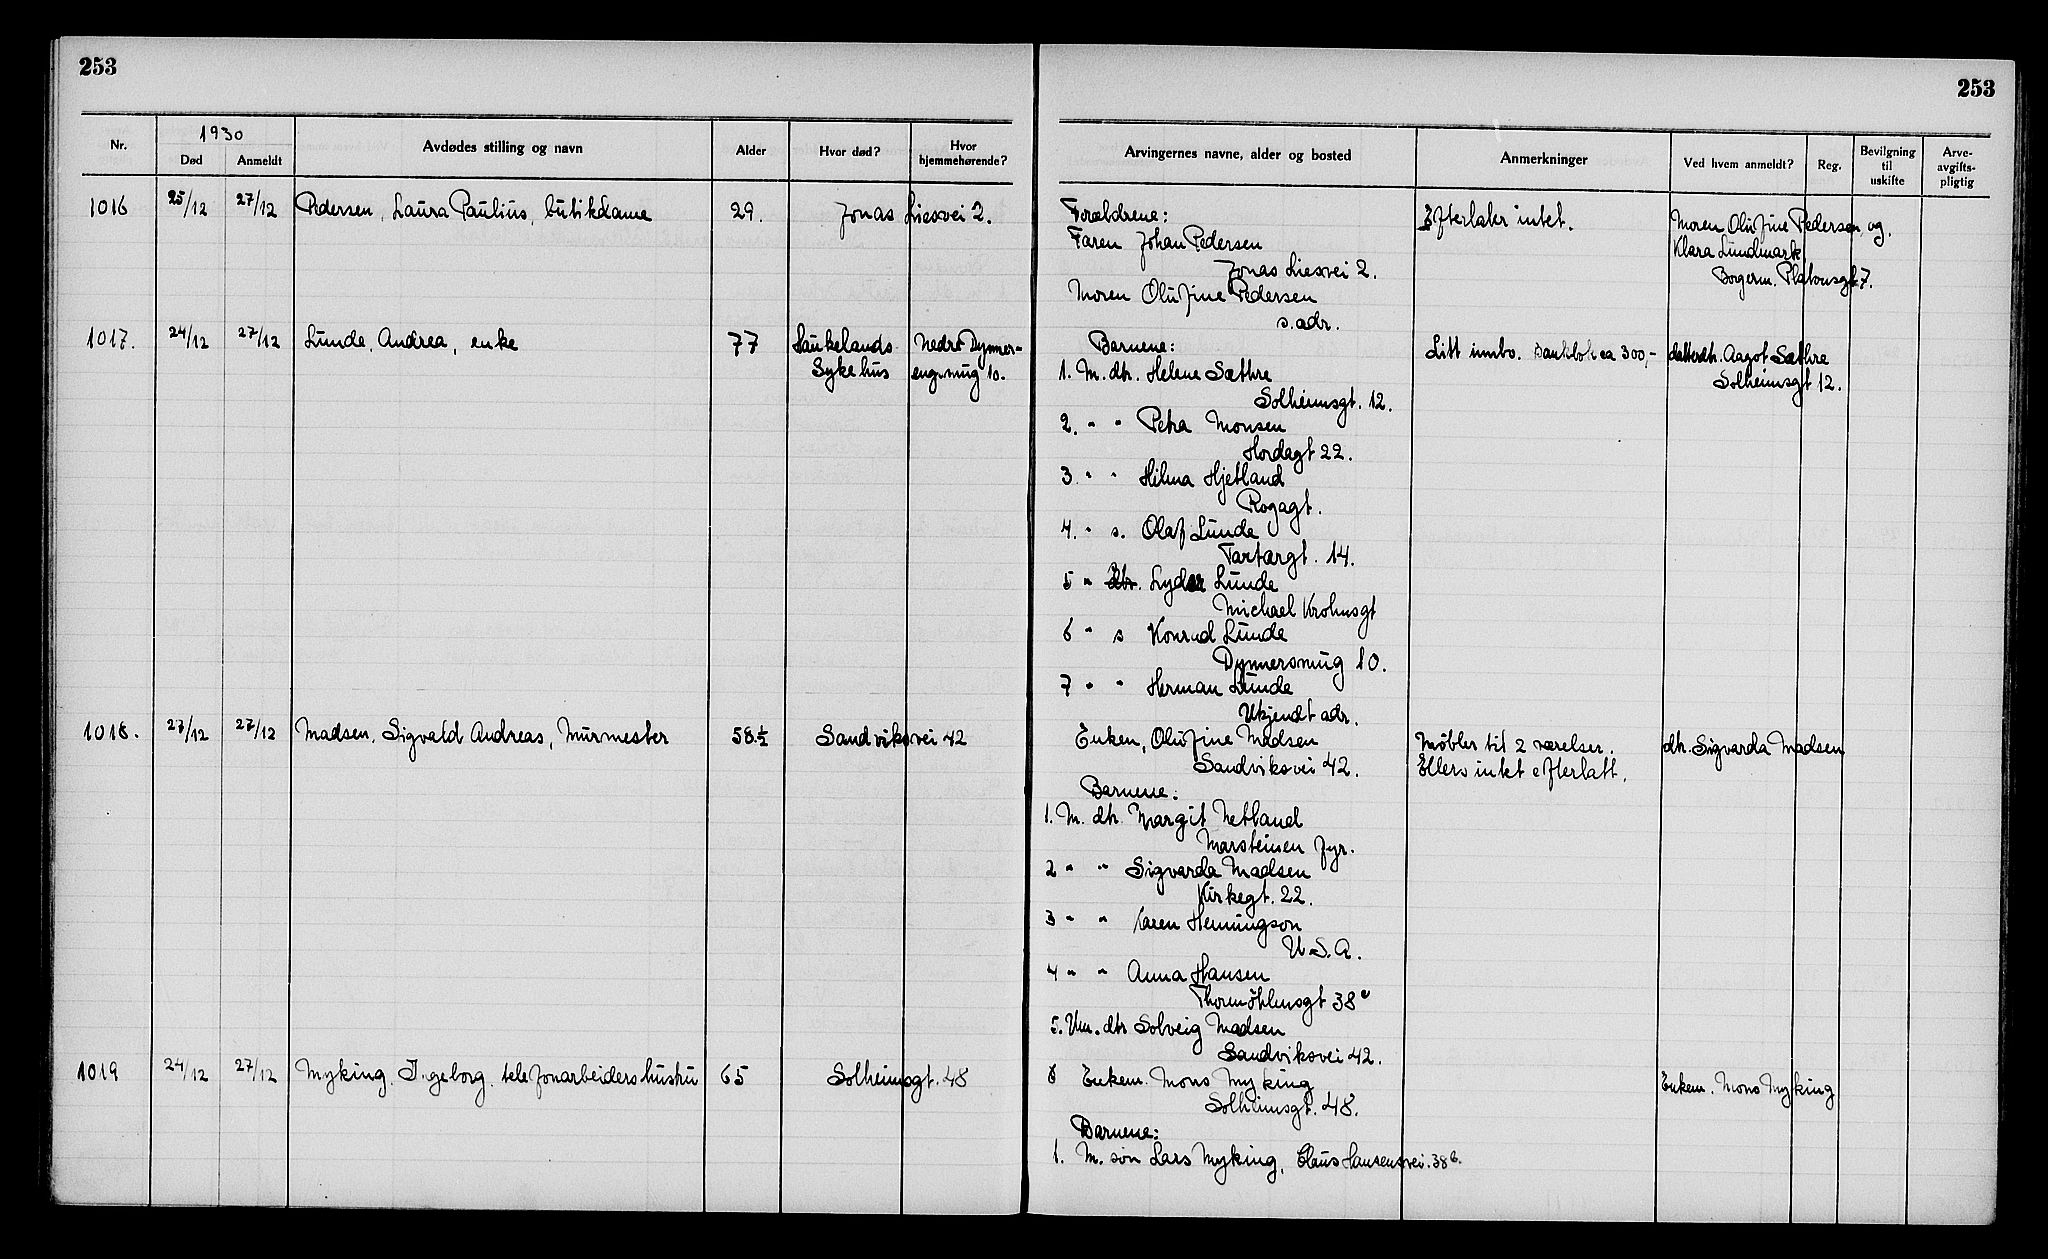 253
253
Nr.
1930
Død
Anmeldt
Avdødes stilling og navn
Alder
Hvor død?
Hvor hjemmehørende?
Arvingernes navne, alder og bosted
Anmerkninger
Ved hvem anmeldt?
Reg.
Bevilgning til uskifte
Arve-avgifts-pligtig
1016 25/12 27/12 Pedersen, Laura Paulius, butikdame 29. Jonas Liesvei 2.
Forældrene:
Faren Johan Pedersen
Jonas Liesvei 2.
Moren Olufine Pedersen
s. adr.
Efterlater intet.
Moren Olufine Pedersen, og.
Klara Lundmark
Borgerm. Platousgt. 7.
1017. 24/12 27/12 Lunde, Andrea, enke 77
Haukelands
Sykehus
Nedre Dynner-
eng.smug 10.
Barnene:
1. M. dtr. Helene Sæthre
Solheimsgt. 12.
2. " " Petra Monsen
Hordagt 22.
3. " " Hilma Hjetland
Rogagt.
4. " s. Olaf Lunde
Tartargt. 14.
5 " dtr. Lyder Lunde
Michael Krohnsgt
6 " s Konrad Lunde
Dynnersmug 10.
7 " " Herman Lunde
Ukjendt adr.
Litt innbo. Bankbok ca 300,-
datterdtr. Aagot Sæthre
Solheimsgt 12.
1018. 27/12 27/12 Madsen, Sigvald Andreas, Murmester 58.½ Sandviksvei 42
Enken, Olufine Madsen
Sandviksvei 42.
Barnene:
1. M. dtr. Margit Netland
Marsteinen fyr.
2 " " Sigvarda Madsen
Kirkegt. 22.
3 " " Karen Henningson
U.S.A.
4 " " Anna Hansen
Thormøhlensgt 38
5. Um. dtr Solveig Madsen
Sandviksvei 42.
Møbler til 2 værelser.
Ellers intet efterlatt.
dtr. Sigvarda Madsen
1019 24/12 27/12 Myking, Ingeborg, telefonarbeiders hustru 65 Solheimsgt. 48
Enkem. Mons Myking
Solheimsgt. 48.
Barnene:
1. M. søn Lars Myking, Claus Hansensvei. 38b.
Enkem. Mons Myking